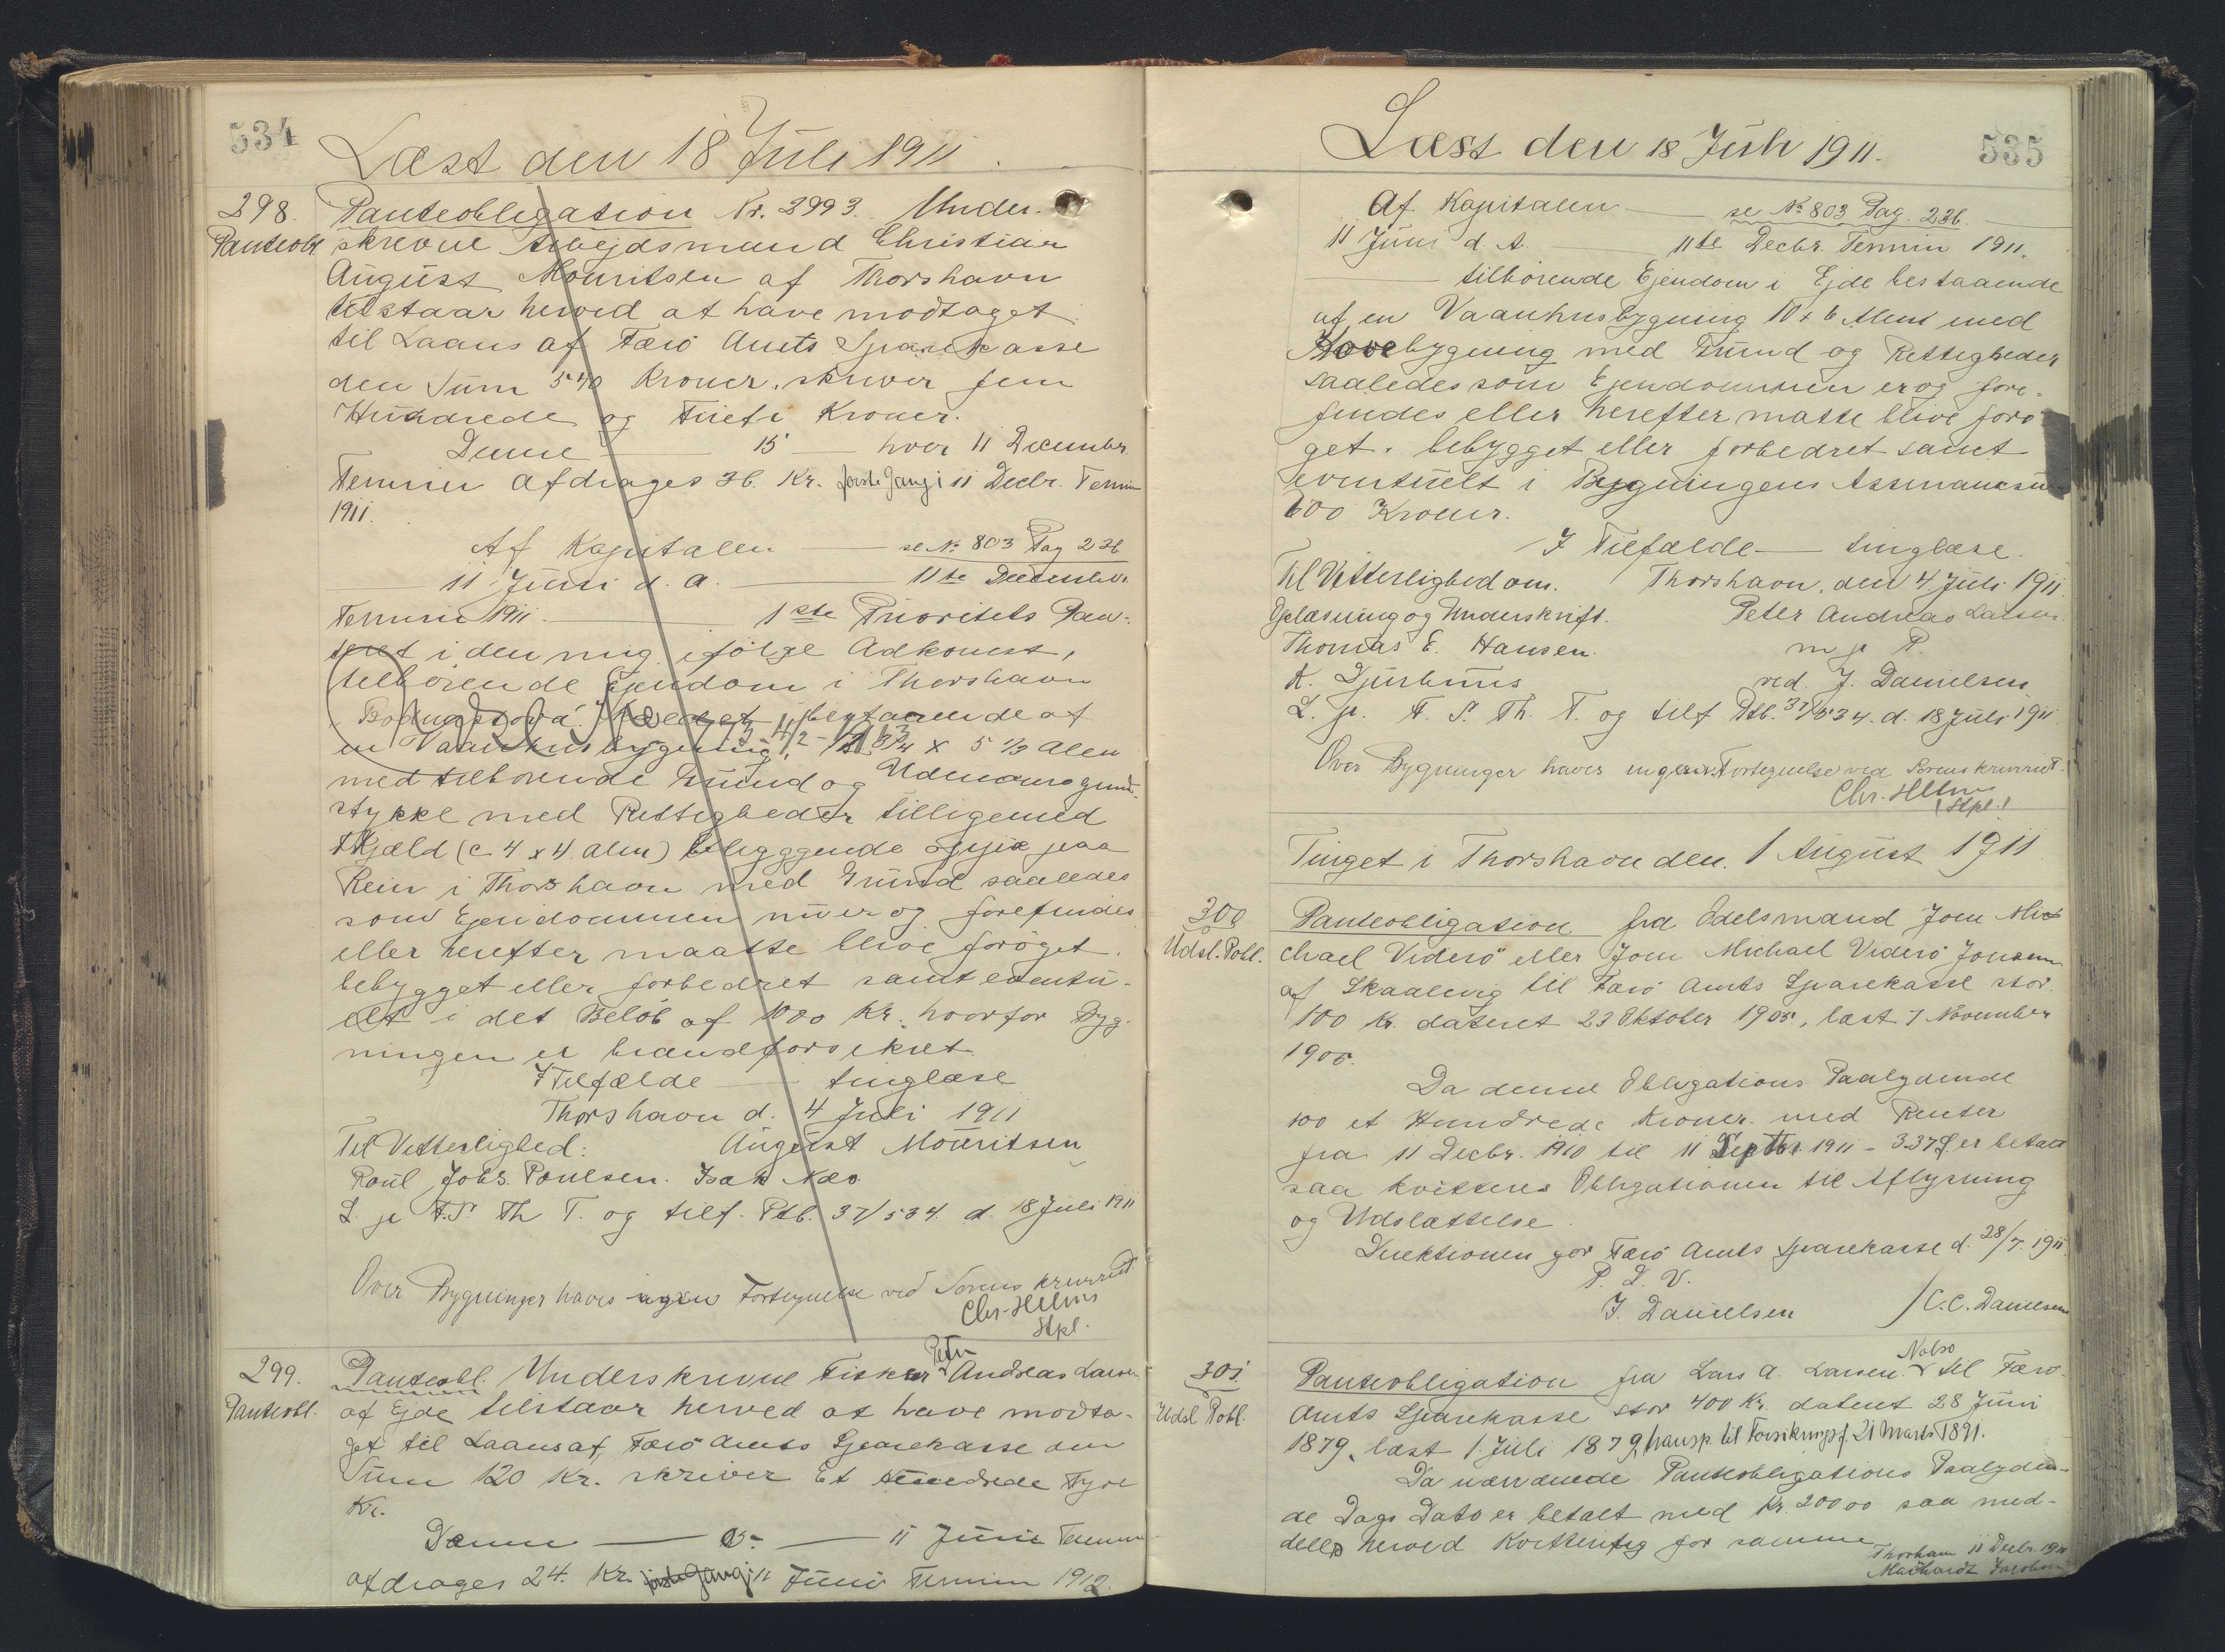 534
Læst den 18 Juli 1911.
298.
Panteobl.
Panteobligation Nr. 2993. Under-
skrevne Arbejdsmand Christian
August Mouritsen af Thorshavn
tilstaar herved at have modtaget
til Laans af Færø Amts Sparekasse
den Sum 540 Kroner, skriver fem
Hundrede og Firti Kroner.
Denne — 15 — hver 11 December
Termin afdrages 36. Kr. første Gang i 11 Decbr. Termin
1911.
Af Kapitalen — se № 803 Pag 236
— 11 Juni d. A. — 11te December
Termin 1911. — 1ste Prioritets Pan-
teret i den mig ifølge Adkomst,
tilhørende Ejendom i Thorshavn
bestaaende af
en Vaaningsbygning, 3/4 x 5 1/3 Alen
med tilhørende Grund og Udenoms grund-
stykke med Rettigheder tilligemed
Hjæld (c 4 x 4 alen) beliggende paa
Rein i Thorshavn med Grund saaledes
som Ejendommen nu er og forefindes
eller herefter maatte blive forøget,
bebygget eller forbedret samt eventu-
elt i det Beløb af 1000 Kr. hvorfor Byg-
ningen er brandforsikret.
I Tilfælde — tinglæse
Thorshavn d. 4 Juli 1911
Til Vitterlighed: August Mouritsen
Poul Johs. Poulsen. Isak
L. p. F. S. Th T. og tilf. Ptb. 37/534. d. 18 Juli 1911
Over Bygninger haves ingen Fortegnelse ved Sorenskriveriet.
Chr. Helms
Stpl.
299.
Panteobl.
Panteobl. Underskrevne Fisker Peter Andreas Larsen
af Ejde tilstaar herved at have modta-
get til Laans af Færø Amts Sparekasse den
Sum 120 Kr. skriver Et Hundrede Tyve
Kr.
Denne — 15 — 11 Juni Termin
afdrages 24. Kr. første Gang i 11 Juni Termin 1912.
Læst den 18 Juli 1911.
535
Af Kapitalen — se № 803 Pag. 236.
11 Juni d. A. — 11te Decbr. Termin 1911.
— tilhørende Ejendom i Ejde bestaaende
af en Vaanhusbygning 10 x 6 Alen med
bygning med Grund og Rettigheder
saaledes som Ejendommen er og fore-
findes eller herefter maatte blive forø-
get, bebygget eller forbedret samt
eventuelt i Bygningens Assurancesum
600 Kroner.
I Tilfælde — tinglæse.
Til Vitterlighed om. Thorshavn, den 4 Juli 1911.
Oplæsning og Underskrift. Peter Andreas Larsen
Thomas E. Hansen. m. p. P.
K. Djurhuus ved J. Danielsen
L. p. F. S. Th. T. og tilf Ptb. 37/534. d. 18 Juli 1911
Over Bygninger haves ingen Fortegnelse ved Sorenskriveriet.
Chr. Helms
(Stpl.)
Tinget i Thorshavn den. 1 August 1911
300
Udsl. Pobl.
Panteobligation fra Odelsmand Joen Mi-
chael Viderø eller Joen Michael Viderø Joensen
af Skaalevig til Færø Amts Sparekasse stor
100 Kr. dateret 23 Oktober 1905, læst 7 November
1905.
Da denne Obligations Paalydende
100 et Hundrede Kroner med Renter
fra 11 Decbr. 1910 til 11 Septbr. 1911 - 3.37 er betalt
saa kvitteres Obligationen til Aflysning
og Udslættelse.
Direktionen for Færø Amts Sparekasse d. 28/7. 1911.
P. D. V.
J. Danielsen / C. C. Danielsen
301
Udsl Pobl.
Panteobligation fra Lars A. Larsen Nolsø til Færø
Amts Sparekasse stor 400 Kr. dateret 28 Juni
1879, læst 1 Juli 1879, transp. til Forsikrings f. 21 Marts 1891.
Da nærværende Panteobligations Paalyden-
de Dags Dato er betalt med Kr. 200 00 saa med-
deles herved Kvittering for samme
Thorshavn 11 Decbr. 1910
Jacobsen